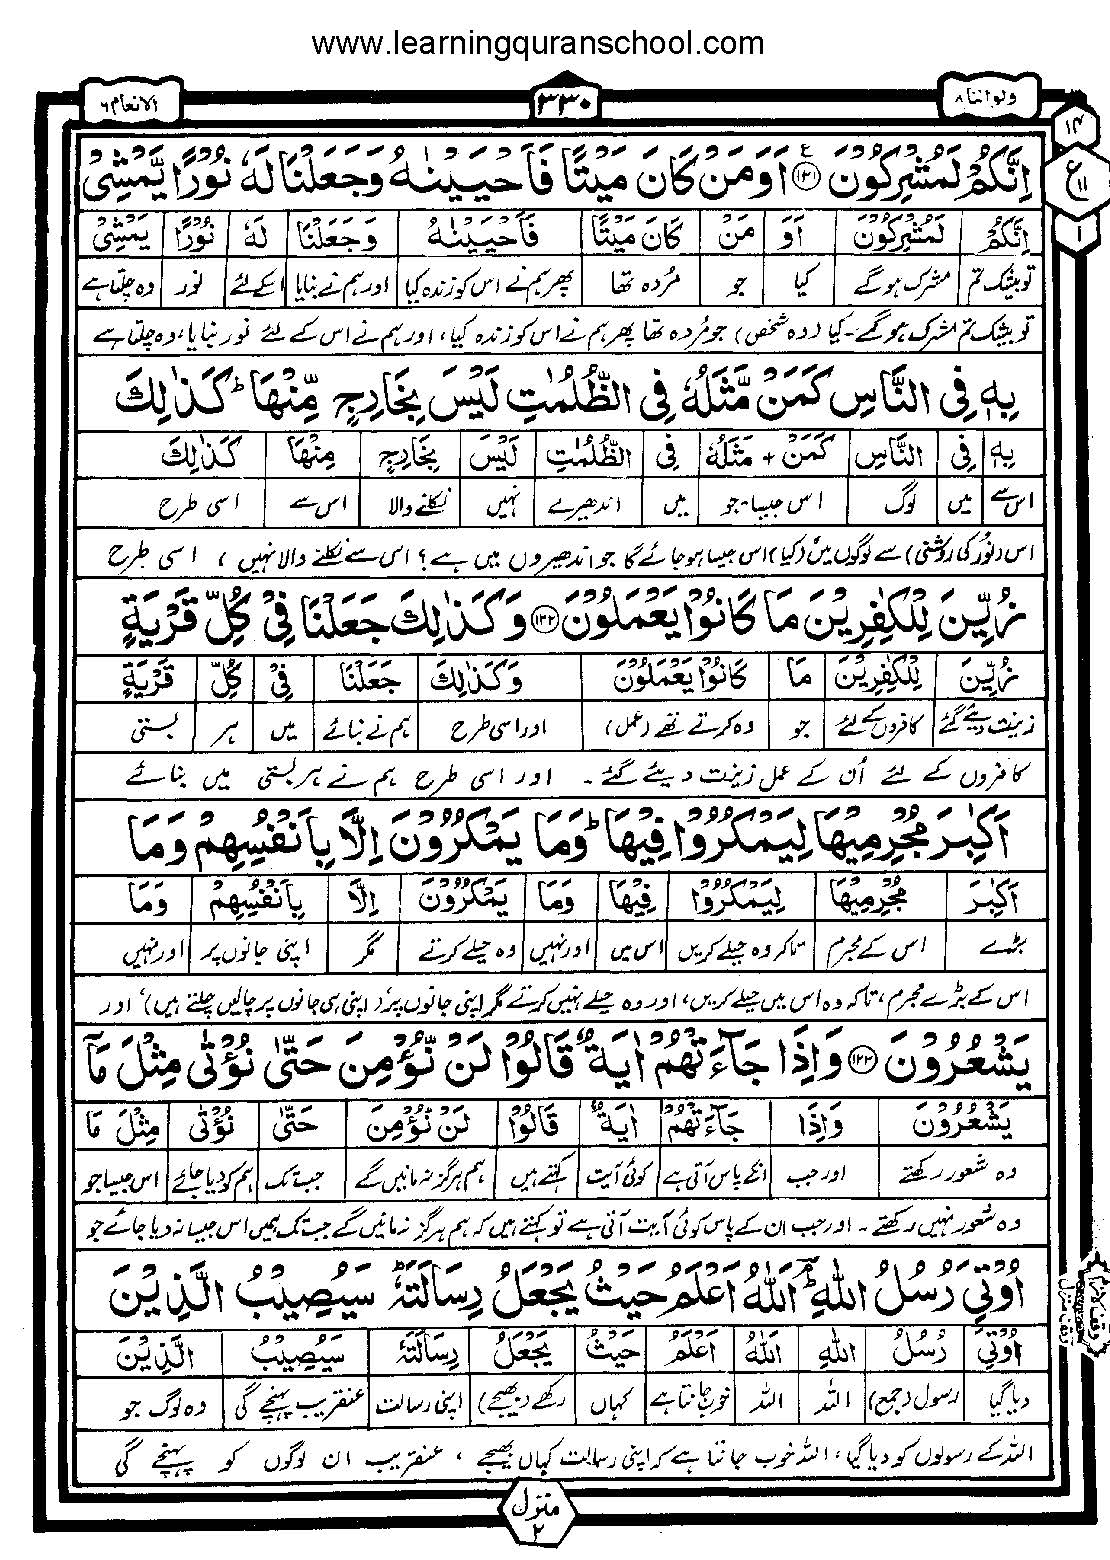 www.learningquranschool.com
ولواننا ٨
٣٣٠
الانعام ٦
١٤
ع ١١
١
اِنَّكُمْ لَمُشْرِكُوْنَ ﴿١٢١﴾ ع اَوَمَنْ كَانَ مَيْتًا فَاَحْيَيْنٰهُ وَجَعَلْنَا لَهٗ نُوْرًا يَّمْشِيْ
اِنَّكُمْ لَمُشْرِكُوْنَ اَوَ مَنْ كَانَ مَيْتًا فَاَحْيَيْنٰهُ وَجَعَلْنَا لَهٗ نُوْرًا يَّمْشِيْ
تو بیشک تم مشرک ہو گے کیا جو مُردہ تھا پھر ہم نے اس کو زندہ کیا اور ہم نے بنایا اسکے لئے نور وہ چلتا ہے
تو بیشک تم مشرک ہو گے۔ کیا (وہ شخص) جو مُردہ تھا پھر ہم نے اس کو زندہ کیا، اور ہم نے اس کے لئے نور بنایا، وہ چلتا ہے
بِهٖ فِي النَّاسِ كَمَنْ مَّثَلُهٗ فِي الظُّلُمٰتِ لَيْسَ بِخَارِجٍ مِّنْهَا ؕ كَذٰلِكَ
بِهٖ فِي النَّاسِ كَمَنْ + مَّثَلُهٗ فِي الظُّلُمٰتِ لَيْسَ بِخَارِجٍ مِّنْهَا كَذٰلِكَ
اس سے میں لوگ اس جیسا۔جو میں اندھیرے نہیں نکلنے والا اس سے اسی طرح
اس (نور کی روشنی) سے لوگوں میں (کیا) اس جیسا ہو جائے گا جو اندھیروں میں ہے؟ اس سے نکلنے والا نہیں، اسی طرح
زُيِّنَ لِلْكٰفِرِيْنَ مَا كَانُوْا يَعْمَلُوْنَ ﴿١٢٢﴾ وَكَذٰلِكَ جَعَلْنَا فِيْ كُلِّ قَرْيَةٍ
زُيِّنَ لِلْكٰفِرِيْنَ مَا كَانُوْا يَعْمَلُوْنَ وَكَذٰلِكَ جَعَلْنَا فِيْ كُلِّ قَرْيَةٍ
زینت دیئے گئے کافروں کے لئے جو وہ کرتے تھے (عمل) اور اسی طرح ہم نے بنائے میں ہر بستی
کافروں کے لئے اُن کے عمل زینت دیئے گئے۔ اور اسی طرح ہم نے ہر بستی میں بنائے
اَكٰبِرَ مُجْرِمِيْهَا لِيَمْكُرُوْا فِيْهَا ؕ وَمَا يَمْكُرُوْنَ اِلَّا بِاَنْفُسِهِمْ وَمَا
اَكٰبِرَ مُجْرِمِيْهَا لِيَمْكُرُوْا فِيْهَا وَمَا يَمْكُرُوْنَ اِلَّا بِاَنْفُسِهِمْ وَمَا
بڑے اس کے مجرم تاکہ وہ حیلے کریں اس میں اور نہیں وہ حیلے کرتے مگر اپنی جانوں پر اور نہیں
اس کے بڑے مجرم، تاکہ وہ اس میں حیلے کریں، اور وہ حیلے نہیں کرتے مگر اپنی جانوں پر، (اپنی ہی جانوں پر چالیں چلتے ہیں)، اور
يَشْعُرُوْنَ ﴿١٢٣﴾ وَاِذَا جَآءَتْهُمْ اٰيَةٌ قَالُوْا لَنْ نُّؤْمِنَ حَتّٰى نُؤْتٰى مِثْلَ مَآ
يَشْعُرُوْنَ وَاِذَا جَآءَتْهُمْ اٰيَةٌ قَالُوْا لَنْ نُّؤْمِنَ حَتّٰى نُؤْتٰى مِثْلَ مَآ
وہ شعور رکھتے اور جب انکے پاس آتی ہے کوئی آیت کہتے ہیں ہم ہرگز نہ مانیں گے جب تک ہم کو دیا جائے اس جیسا جو
وہ شعور نہیں رکھتے۔ اور جب ان کے پاس کوئی آیت آتی ہے تو کہتے ہیں کہ ہم ہرگز نہ مانیں گے جب تک ہمیں اس جیسا نہ دیا جائے جو
اُوْتِيَ رُسُلُ اللّٰهِ ؔؕ اَللّٰهُ اَعْلَمُ حَيْثُ يَجْعَلُ رِسَالَتَهٗ ؕ سَيُصِيْبُ الَّذِيْنَ
اُوْتِيَ رُسُلُ اللّٰهِ اَللّٰهُ اَعْلَمُ حَيْثُ يَجْعَلُ رِسَالَتَهٗ سَيُصِيْبُ الَّذِيْنَ
دیا گیا رسول (جمع) اللہ اللہ خوب جانتا ہے کہاں رکھے (بھیجے) اپنی رسالت عنقریب پہنچے گی وہ لوگ جو
اللہ کے رسولوں کو دیا گیا، اللہ خوب جانتا ہے کہ اپنی رسالت کہاں بھیجے، عنقریب ان لوگوں کو پہنچے گی
وقف منزل
منزل ٢